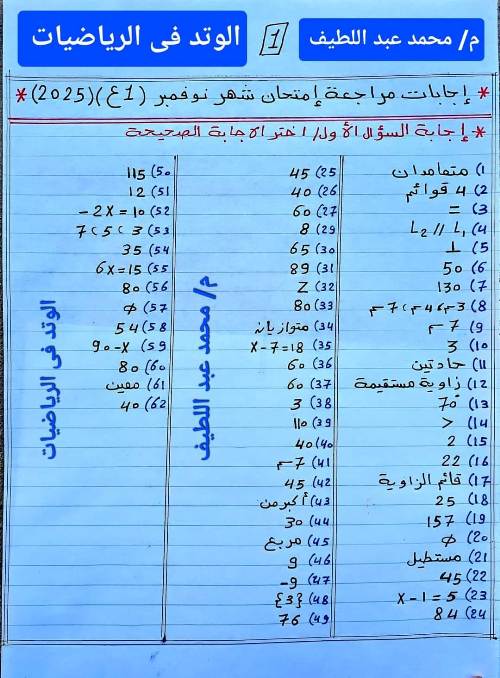 م/ محمد عبد اللطيف
1
الوتد فى الرياضيات
* إجابات مراجعة إمتحان شهر نوفمبر (1ع)(2025) *
* إجابة السؤال الأول/ اختر الاجابة الصحيحة
1) متعامدان
2) 4 قوائم
3) =
4) L₁ // L₂
5) ⊥
6) 50
7) 130
8) 3سم، 4سم، 7سم
9) 7سم
10) 3
11) حادتين
12) زاوية مستقيمة
13) 70°
14) >
15) 2
16) 22
17) قائم الزاوية
18) 25
19) 157
20) φ
21) مستطيل
22) 45
23) x-1=5
24) 84
25) 45
26) 40
27) 60
29) 8
30) 65
31) 89
32) Z
33) 80
34) متوازيان
35) x-7=18
36) 60
37) 60
38) 3
39) 110
40) 40
41) 7سم
42) 45
43) أكبر من
44) 30
45) مربع
46) 9
47) -9
48) {3}
49) 76
50) 115
51) 12
52) -2x=10
53) 3، 5، 7
54) 35
55) 6x=15
56) 80
57) φ
58) 54
59) 90-x
60) 80
61) معين
62) 40
م/ محمد عبد اللطيف
الوتد فى الرياضيات